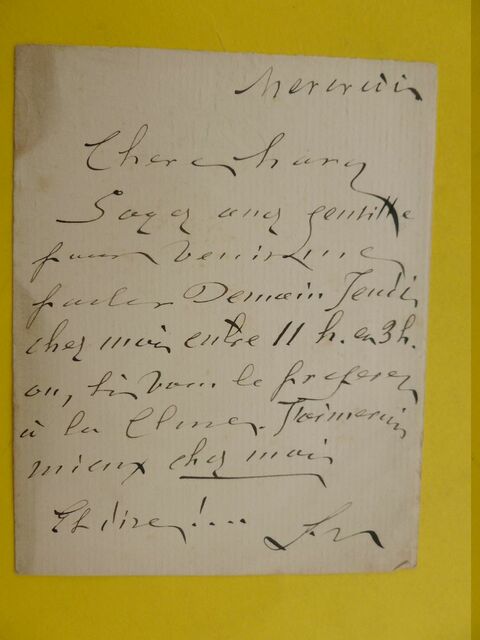 Mercredi
Chere
Soyez assez gentille
pour venir me
parler Demain Jeudi
chez moi entre 11 h. et 3 h.
ou, si vous le preferez
à la . J'aimerais
mieux chez moi
!...